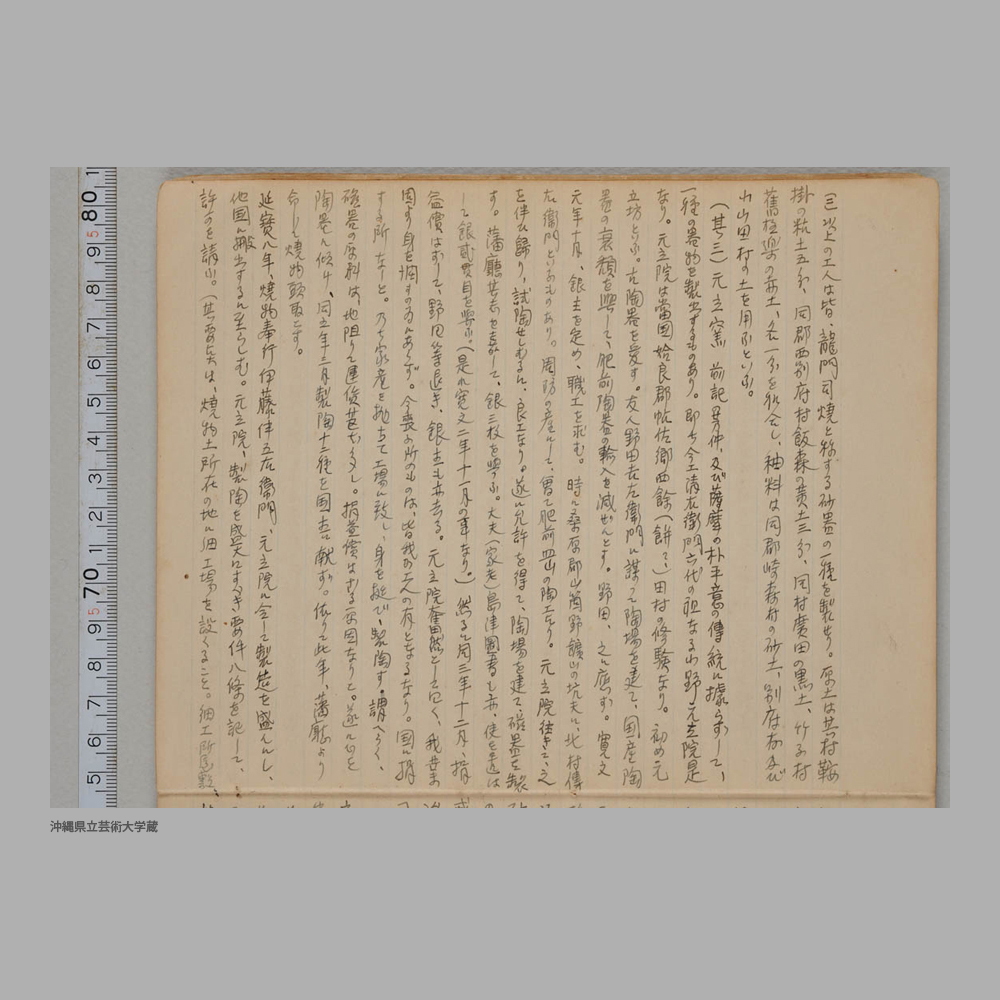 以上の工人は皆、龍門司焼と称する砂器の一種を製せり。原土は其村鞍
掛の粘土五分、同郡西別府村飯森の黄土三分、同村廣田の黒土、竹子村
舊極楽の赤土、各一分を総合し、釉料は同郡崎森村の砂土、別府村及び
小山田村の土を用ふといふ。
(其三)元立窯 前記芳仲、及び薩摩の朴平意の傳統に據らずして、
一種の器物を製出するものあり。即ち今工清右衛門六代の祖なる小野元立院是
なり。元立院は當国姶良郡帖佐郷西餘(餅て)田村の修験なり。初め元
立坊といふ。古陶器を愛す。友人野田右左衛門に謀って陶場を建て、国産陶
器の衰頽を興して、肥前陶器の輸入を減ぜんとす。野田、之に應ず。寛文
元年十月、銀主を定め、職工を求む。時に桑原郡山ヶ野鑛山の坑夫に北村傳
右衛門といふものあり。周防の産にして、曽て肥前皿山の陶工なり。元立院往きて之
を伴ひ歸り、試陶せしむるに、良工なり。遂に允許を得て、陶場を建て、磁器を製
す。藩廳其志を嘉して、銀三枚を與ふ。大夫(家老)島津圖書も亦、使を遣は
して銀貳貫目を與ふ。(是れ寛文二年十一月の事なり。)然るに同三年十二月、損
益償はずして、野田は業退き、銀主も亦去る。元立院奮然として曰く、我業
固より身を潤すの為にあらず。今喪ふ所のものは、皆我が工人の有となるなり。国に損
する所なしと。乃ち家産を抛ちて工場に致し、身を挺で、製陶す。謂へらく、
磁器の原料は、地阻りて運搬甚だ多し。損益償はざる一原因なりと。遂に心を
陶器に傾け、同五年三月製陶十二種を国主に献ず。依りて此年、藩廳より
命じて焼物頭取とす。
延寶八年、焼物奉行伊藤伴五左衛門、元立院に令して製造を盛んにし、
他国に搬出するに至らしむ。元立院、製陶を盛大にすべき要件八條を記して、
許可を請ふ。(其要件は、焼物土所在の地に細工場を設くること。細工所